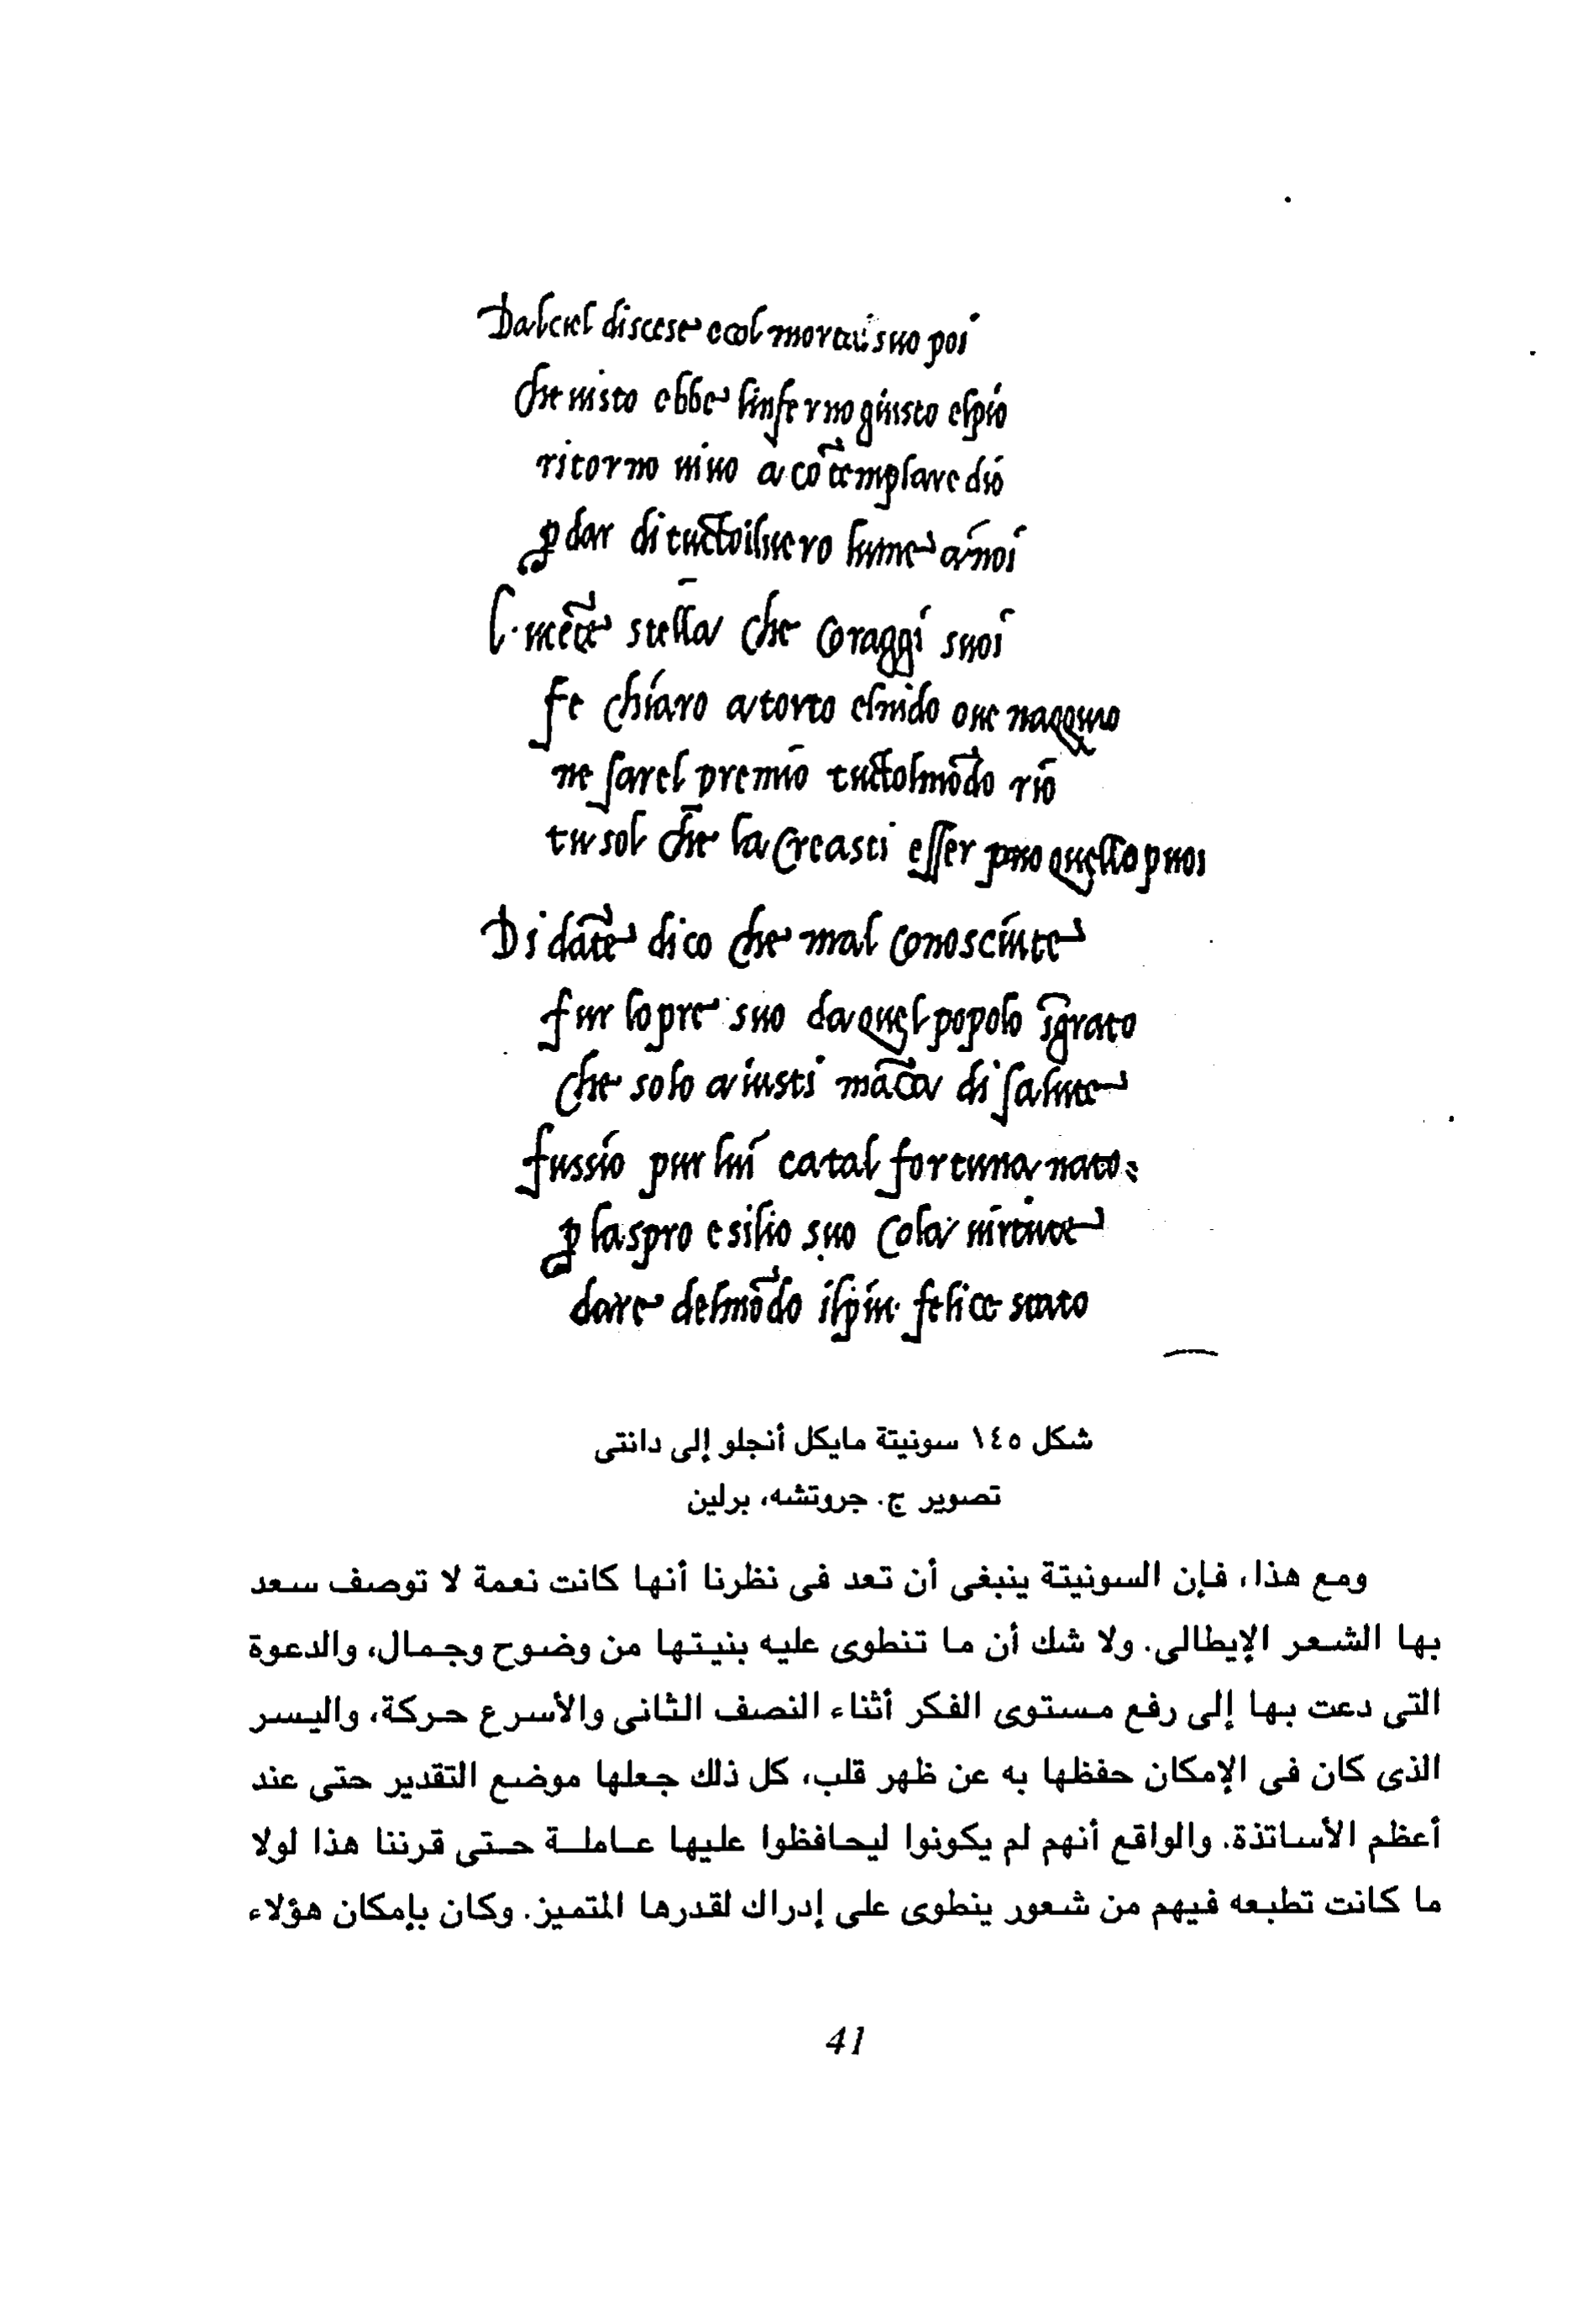 Dal ciel discese e col mortal suo poi
che visto ebbe linferno giusto elpio
ritorno vivo a cõtemplare dio
p dar di tucto il vero lume anoi
l·ucẽte stella che co raggi suoi
fe chiaro a torto el nido ove nacqu io
ne sarel premio tucto l mõdo rio
tu sol che la creasti esser puo quello puoi
Di dãte dico che mal conosciute
fur lopre suo da quel popolo ĩgrato
che solo a iusti mãca di salute
fussio pur lui ca tal fortuna nato
p laspro esilio suo cola virtute
dare del mõdo il piu felice stato
شكل ١٤٥ سونيتة مايكل أنجلو إلى دانتى
تصوير ج. جروتشه، برلين
ومع هذا، فإن السونيتة ينبغى أن تعد فى نظرنا أنها كانت نعمة لا توصف سعد
بها الشعر الإيطالى. ولا شك أن ما تنطوى عليه بنيتها من وضوح وجمال، والدعوة
التى دعت بها إلى رفع مستوى الفكر أثناء النصف الثانى والأسرع حركة، واليسر
الذى كان فى الإمكان حفظها به عن ظهر قلب، كل ذلك جعلها موضع التقدير حتى عند
أعظم الأساتذة. والواقع أنهم لم يكونوا ليحافظوا عليها عاملة حتى قرننا هذا لولا
ما كانت تطبعه فيهم من شعور ينطوى على إدراك لقدرها المتميز. وكان بإمكان هؤلاء
41